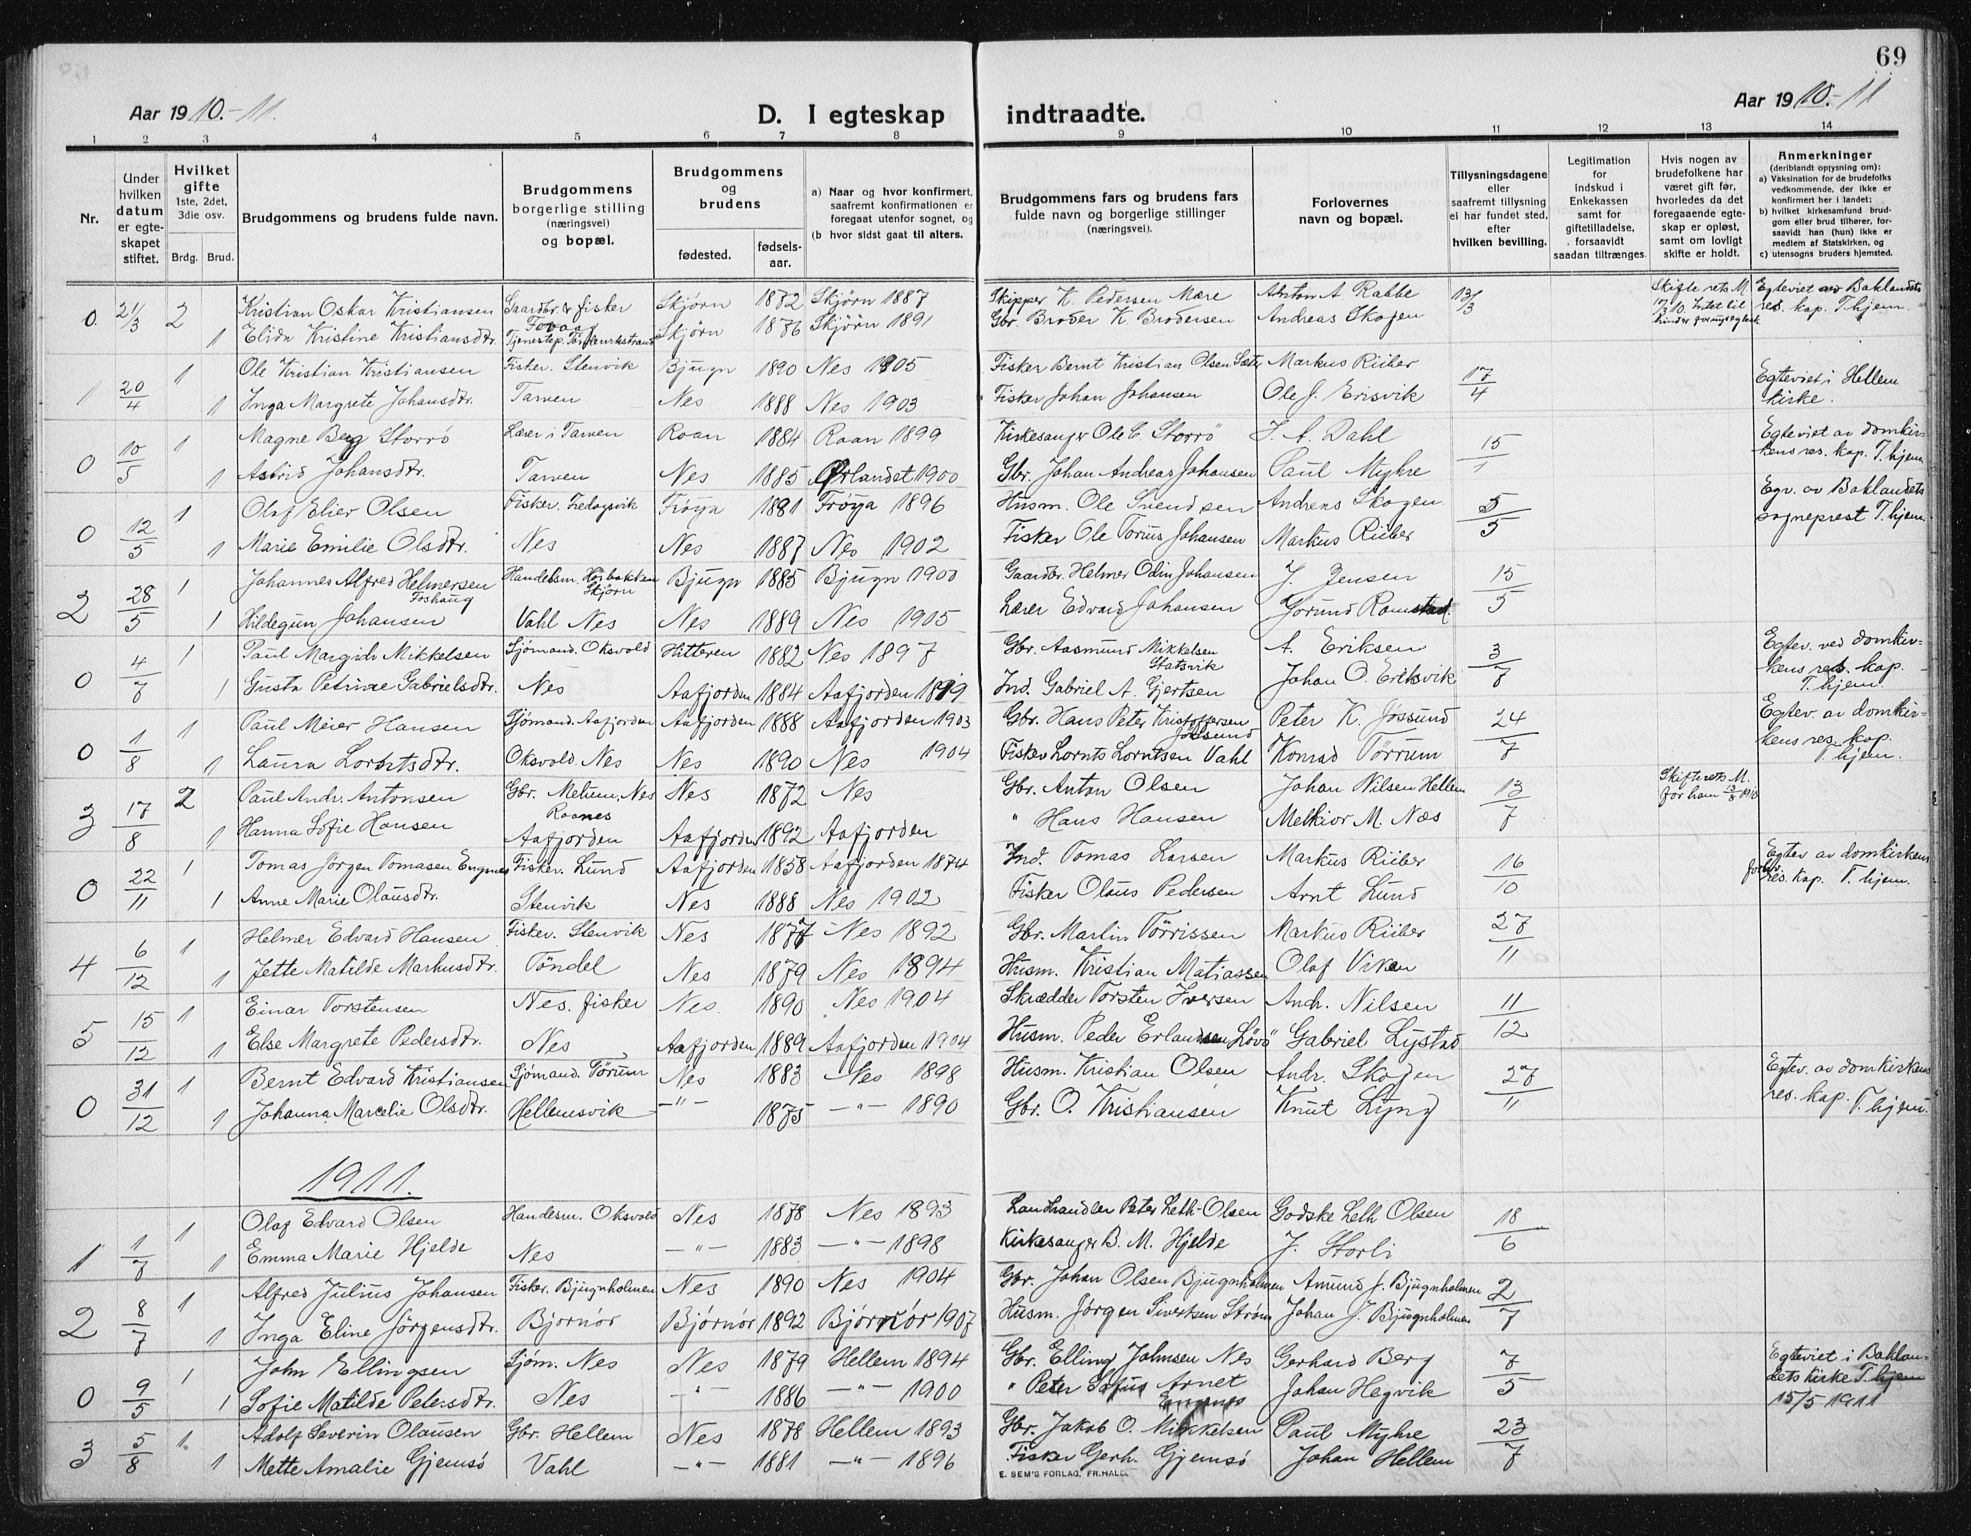 69
Aar 1910.-11.
D. I egteskap indtraadte.
Aar 1910.-11
1 2 3 4 5 6 7 8 9 10 11 12 13 14
Nr.
Under hvilken datum er egteskapet stiftet.
Hvilket gifte 1ste, 2det, 3die osv.
Brdg. Brud.
Brudgommens og brudens fulde navn.
Brudgommens borgerlige stilling (næringsvei) og bopæl.
Brudgommens og brudens
fødested. fødselsaar.
a) Naar og hvor konfirmert, saafremt konfirmationen er foregaat utenfor sognet, og
(b hvor sidst gaat til alters.
Brudgommens fars og brudens fars fulde navn og borgerlige stillinger (næringsvei).
Forlovernes navn og bopæl.
Tillysningsdagene eller saafremt tillysning ei har fundet sted, efter hvilken bevilling.
Legitimation for indskud i Enkekassen samt for giftetilladelse, forsaavidt saadan tiltrænges.
Hvis nogen av brudefolkene har været gift før, hvorledes da det foregaaende egteskap er opløst, samt om lovligt skifte er holdt.
Anmerkninger (deriblandt opjysning om):
a) Vaksination for de brudefolks vedkommende, der ikke er konfirmert her i landet;
b) hvilket kirkesamfund brudgom eller brud tilhører, forsaavidt han (hun) ikke er medlem af Statskirken, og
c) utensogns bruders hjemsted.
0. 21/3 2 Kristian Oskar Kristiansen Gaardbr. & fisker Skjørn 1872 Skjørn 1887 Skipper K. Pedersen Mære Anton A. Rabbe 13/3 Skifterets M. Egteviet ved Baklandets res. kap. T.hjem.
1 Elida Kristine Kristiansdtr. Tjenestep. Skjørn 1876 Skjørn 1891 Gbr. Broder K. Brodersen Andreas Skogen
1 20/4 1 Ole Kristian Kristiansen Fisker. Stenvik Bjugn 1890 Nes 1905 Fisker Bernt Kristian Olsen Sæter Markus Riiber 17/4 Egteviet i Hellem kirke.
1 Inga Margrete Johansdtr. Tarven Nes 1888 Nes 1903 Fisker Johan Johansen Ole J. Erisvik
0 10/5 1 Magne Berg Storrø Lærer i Tarven Roan 1884 Roan 1899 Kirkesanger Ole C. Storrø J. A. Dahl 15/1 Egteviet av domkirkens res. kap. T.hjem
1 Astrid Johansdtr. Tarven Nes 1885 Ørlandet 1900 Gbr. Johan Andreas Johansen Paul Myhre
0 12/5 1 Olaf Elier Olsen Fisker. Frøya 1881 Frøya 1896 Husm. Ole Svendsen Andreas Skogen. 5/5 Egv. av Baklandets sogneprest T.hjem
1 Marie Emilie Olsdtr. Nes Nes 1887 Nes 1902 Fisker Ole Torius Johansen Markus Riiber
2 28/5 1 Johannes Alfred Helmersen Foshaug Handelsm. Høibakken Skjørn Bjugn 1885 Bjugn 1900 Gaardbr. Helmer Odin Johansen J. Jensen 15/5
1 Hildegun Johansen Vahl Nes Nes 1889 Nes 1905 Lærer Edvard Johansen Jorund Ramstad.
0 4/7 1 Paul Margido Mikkelsen Sjømand. Oksvold Hitteren 1882 Nes 1897 Gbr. Aasmund Mikkelsen Statsvik A. Eriksen 3/7 Egtev. ved domkirkens res. kap. T.hjem.
1 Gusta Petrine Gabrielsdtr. Nes Aafjorden 1884 Aafjorden 1899 Ind. Gabriel A. Gjertsen Johan O. Eriksvik
0 1/8 1 Paul Meier Hansen Sjømand. Aafjorden Aafjorden 1888 Aafjorden 1903 Gbr. Hans Peter Kristoffersen Jøssund Peter K. Jøssund 24/7 Egtev. av domkirkens res. kap. T.hjem.
1 Laura Lorntsdtr. Oksvold. Nes Nes 1890 Nes 1904 Fisker Lornts Lorntsen Vahl Konrad Tørrum
3 17/8 2 Paul Andr. Antonsen Gbr. Melum, Nes Nes 1872 Nes Gbr. Anton Olsen Johan Nilsen Hellem 13/7 Skifterets M. for ham 13/8 1910
1 Hanna Sofie Hansen Raanes Aafjorden Aafjorden 1892 Aafjorden " Hans Hansen Melkior M. Næs
0 22/11 1 Tomas Jörgen Tomasen Engnes Fisker. Lund Aafjorden 1858 Aafjorden 1874 Ind. Tomas Larsen Markus Riiber 16/10 Egtev av domkirkens res. kap. T.hjem.
1 Anne Marie Olausdtr. Stenvik Nes 1888 Nes 1902 Fisker Olaus Pedersen Arnt Lund
4 6/12 1 Helmer Edvard Hansen Fisker. Stenvik Nes 1877 Nes 1892 Gbr. Martin Tørrissen Markus Riiber 27/11
1 Jette Matilde Markusdtr. Tøndel Nes 1879 Nes 1894 Husm. Kristian Matiassen Olaf Viken
5 15/12 1 Einar Torstensen Nes. fisker Nes. 1890 Nes 1904 Skrædder Torsten Iversen Andr. Nilsen 11/12
1 Else Margrete Pedersdtr. Nes Aafjorden 1889 Aafjorden 1904 Husm. Peder Erlandsen Løvø Gabriel Lystad
0 31/12 1 Bernt Edvard Kristiansen Sjømand. Tørum Nes 1883 Nes 1898 Husm. Kristian Olsen Andr. Skogen 27/11 Egtev. av domkirkens res. kap. T.hjem.
1 Johanna Marcelie Olsdtr. Hellemsvik —"— 1875 —"— 1890 Gbr. O. Kristiansen Knut Lyng
1911.
1 1/7 1 Olaf Edvard Olsen Handesm. Oksvold Nes 1878 Nes 1893 Landhandler Peter Leth-Olsen Godske Leth Olsen 18/6
1 Emma Marie Hjelde Nes —"— 1883 —"— 1898 Kirkesanger B. M. Hjelde J. Storli
2 8/7 1 Alfred Julius Johansen Fisker. Bjugnholmen Nes 1890 Nes 1904 Gbr. Johan Olsen Bjugnholmen Amund J. Bjugnholmen 2/7
1 Inga Eline Jørgensdtr. Bjørnør Bjørnør 1892 Bjørnör 1907 Husm. Jørgen Sivertsen Strøm Johan J. Bjugnholmen
0 9/5 1 John Ellingsen Sjøm. Nes Nes 1879 Hellem 1894 Gbr. Elling Johnsen Nes Gerhard Berg 7/5 Egteviet i Baklandets kirke T.hjem 15/5 1911
1 Sofie Matilde Petersdtr. Nes —"— 1886 —"— 1900 " Peter Sofus Arnet Johan Hegvik
3 5/8 1. Adolf Severin Olausen Gbr. Hellem Nes 1878 Hellem 1893 Gbr. Jakob O. Mikkelsen Paul Myhre 23/7
1 Mette Amalie Gjemsø Vahl —"— 1881 —"— 1896 Fisker Gerh. Gjemsø Johan Hellem
E. SEM'S FORLAG, FR.HALD.